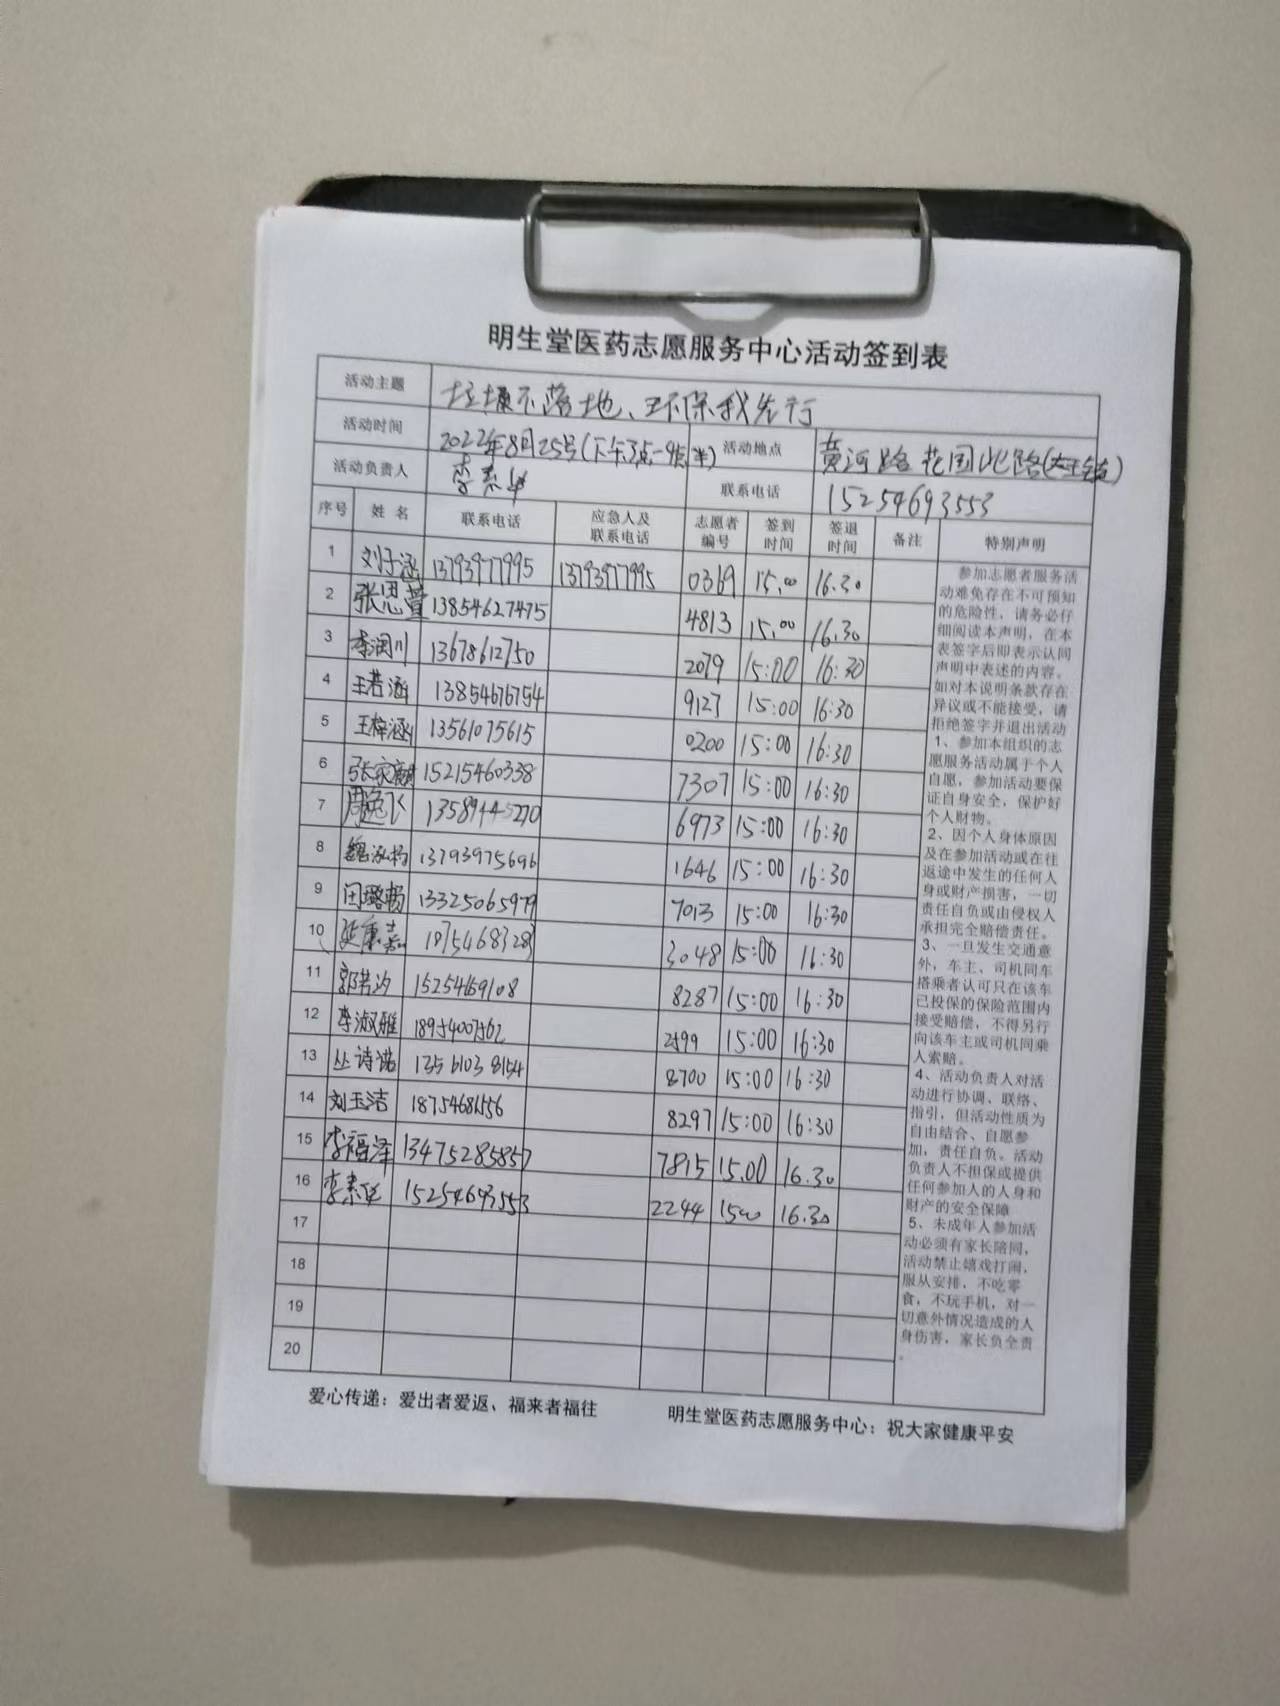 明生堂医药志愿服务中心活动签到表
活动主题 垃圾不落地、环保我先行
活动时间 2022年8月25号(下午3点-4点半) 活动地点 黄河路 花园北路
活动负责人 李素 联系电话 15254693553
序号 姓名 联系电话 应急人及联系电话 志愿者编号 签到时间 签退时间 备注 特别声明
1 刘子涵 13793977995 13793977995 0369 15.00 16.30
2 张恩萱 13854627475 4813 15.00 16.30
3 李润川 13678612750 2079 15:00 16:30
4 王若涵 13854676754 9127 15:00 16:30
5 王梓涵 13561075615 0200 15:00 16:30
6 张家麒 15215460338 7307 15:00 16:30
7 周逸飞 13589445270 6973 15:00 16:30
8 魏泓杨 13793975696 1646 15:00 16:30
9 田璐畅 13325065979 7013 15:00 16:30
10 康嘉 18754683283 3048 15:00 16:30
11 郭若汐 15254669108 8287 15:00 16:30
12 李淑雅 18954007562 2599 15:00 16:30
13 丛诗诺 13561038154 8700 15:00 16:30
14 刘玉洁 18754681556 8297 15:00 16:30
15 李福泽 13475285857 7815 15.00 16.30
16 李素 15254693553 2244 1500 16.30
17
18
19
20
参加志愿者服务活
动难免存在不可预知
的危险性，请务必仔
细阅读本声明，在本
表签字后即表示认同
声明中表述的内容。
如对本说明条款存在
异议或不能接受，请
拒绝签字并退出活动
1、参加本组织的志
愿服务活动属于个人
自愿，参加活动要保
证自身安全，保护好
个人财物。
2、因个人身体原因
及在参加活动或在往
返途中发生的任何人
身或财产损害，一切
责任自负或由侵权人
承担完全赔偿责任。
3、一旦发生交通意
外，车主、司机同车
搭乘者认可只在该车
已投保的保险范围内
接受赔偿，不得另行
向该车主或司机同乘
人索赔。
4、活动负责人对活
动进行协调、联络、
指引，但活动性质为
自由结合、自愿参
加，责任自负。活动
负责人不担保或提供
任何参加人的人身和
财产的安全保障
5、未成年人参加活
动必须有家长陪同，
活动禁止嬉戏打闹，
服从安排，不吃零
食，不玩手机，对一
切意外情况造成的人
身伤害，家长负全责
。
爱心传递：爱出者爱返、福来者福往 明生堂医药志愿服务中心：祝大家健康平安